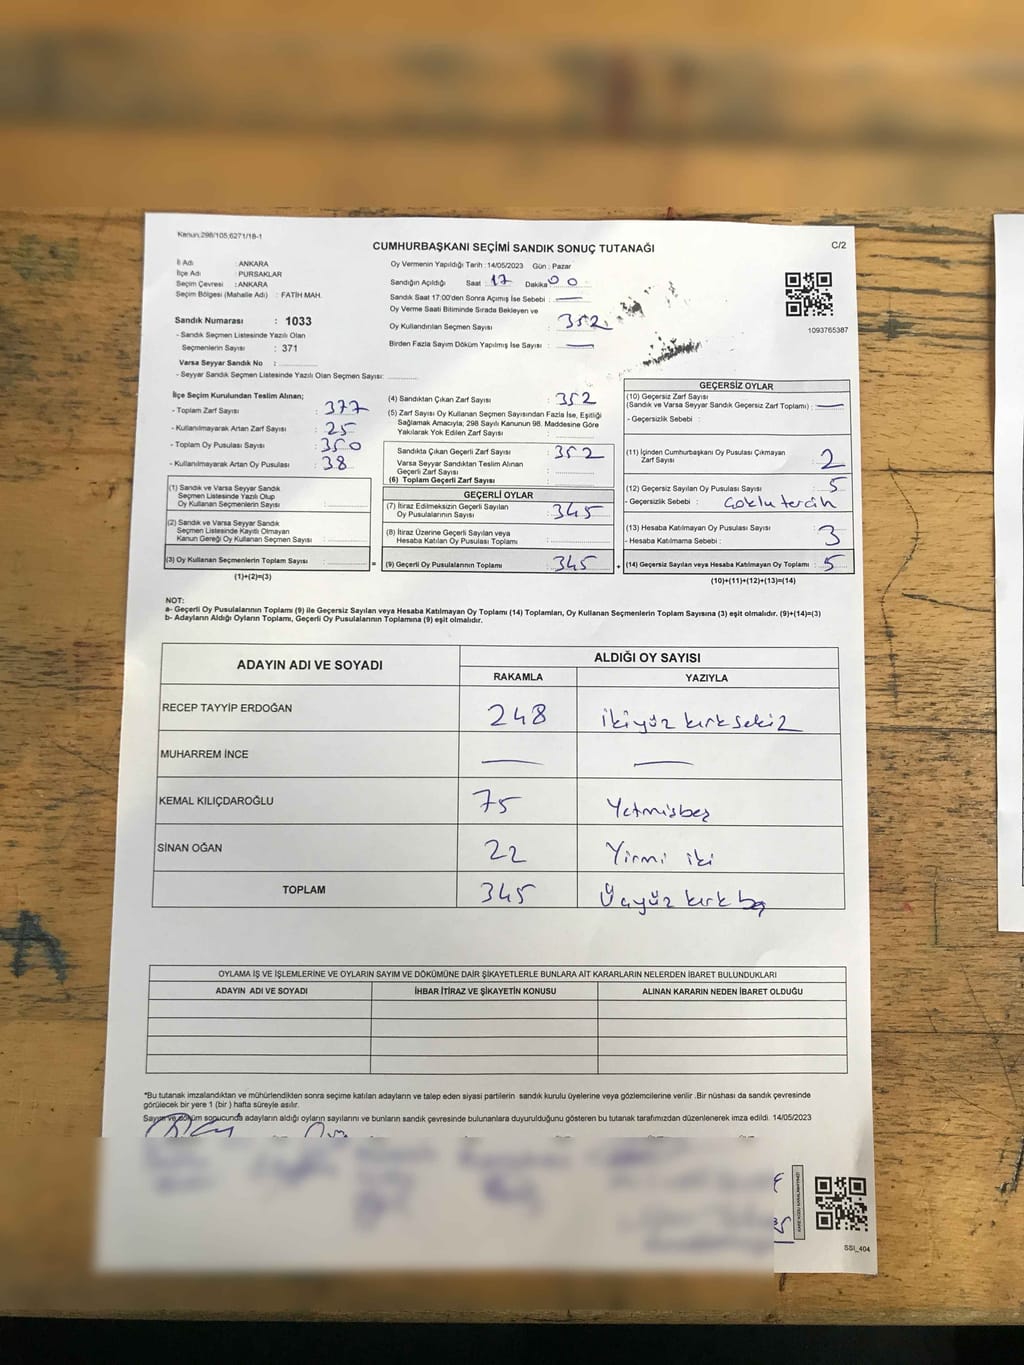 Kanun:298/105;6271/18-1
CUMHURBAŞKANI SEÇİMİ SANDIK SONUÇ TUTANAĞI
C/2
İl Adı : ANKARA
İlçe Adı : PURSAKLAR
Seçim Çevresi : ANKARA
Seçim Bölgesi (Mahalle Adı) : FATİH MAH.
Sandık Numarası : 1033
- Sandık Seçmen Listesinde Yazılı Olan
Seçmenlerin Sayısı : 371
Varsa Seyyar Sandık No :
- Seyyar Sandık Seçmen Listesinde Yazılı Olan Seçmen Sayısı:
Oy Vermenin Yapıldığı Tarih : 14/05/2023 Gün : Pazar
Sandığın Açıldığı Saat : 17 Dakika 00
Sandık Saat 17:00'den Sonra Açımış İse Sebebi : —
Oy Verme Saati Bitiminde Sırada Bekleyen ve
Oy Kullandırılan Seçmen Sayısı : 352
Birden Fazla Sayım Döküm Yapılmış İse Sayısı : —
1093765387
İlçe Seçim Kurulundan Teslim Alınan;
- Toplam Zarf Sayısı : 377
- Kullanılmayarak Artan Zarf Sayısı : 25
- Toplam Oy Pusulası Sayısı : 350
- Kullanılmayarak Artan Oy Pusulası : 38
(1) Sandık ve Varsa Seyyar Sandık
Seçmen Listesinde Yazılı Olup
Oy Kullanan Seçmenlerin Sayısı :
(2) Sandık ve Varsa Seyyar Sandık
Seçmen Listesinde Kayıtlı Olmayan
Kanun Gereği Oy Kullanan Seçmen Sayısı :
(3) Oy Kullanan Seçmenlerin Toplam Sayısı :
(1)+(2)=(3)
(4) Sandıktan Çıkan Zarf Sayısı : 352
(5) Zarf Sayısı Oy Kullanan Seçmen Sayısından Fazla İse, Eşitliği
Sağlamak Amacıyla; 298 Sayılı Kanunun 98. Maddesine Göre
Yakılarak Yok Edilen Zarf Sayısı :
Sandıkta Çıkan Geçerli Zarf Sayısı : 352
Varsa Seyyar Sandıktan Teslim Alınan
Geçerli Zarf Sayısı :
(6) Toplam Geçerli Zarf Sayısı :
GEÇERLİ OYLAR
(7) İtiraz Edilmeksizin Geçerli Sayılan
Oy Pusulalarının Sayısı : 345
(8) İtiraz Üzerine Geçerli Sayılan veya
Hesaba Katılan Oy Pusulası Toplamı :
(9) Geçerli Oy Pusulalarının Toplamı : 345
GEÇERSİZ OYLAR
(10) Geçersiz Zarf Sayısı
(Sandık ve Varsa Seyyar Sandık Geçersiz Zarf Toplamı) : —
- Geçersizlik Sebebi :
(11) İçinden Cumhurbaşkanı Oy Pusulası Çıkmayan
Zarf Sayısı : 2
(12) Geçersiz Sayılan Oy Pusulası Sayısı : 5
- Geçersizlik Sebebi : çoklu tercih
(13) Hesaba Katılmayan Oy Pusulası Sayısı : 3
- Hesaba Katılmama Sebebi :
(14) Geçersiz Sayılan veya Hesaba Katılmayan Oy Toplamı : 5
(10)+(11)+(12)+(13)=(14)
NOT:
a- Geçerli Oy Pusulalarının Toplamı (9) ile Geçersiz Sayılan veya Hesaba Katılmayan Oy Toplamı (14) Toplamları, Oy Kullanan Seçmenlerin Toplam Sayısına (3) eşit olmalıdır. (9)+(14)=(3)
b- Adayların Aldığı Oyların Toplamı, Geçerli Oy Pusulalarının Toplamına (9) eşit olmalıdır.
ADAYIN ADI VE SOYADI
ALDIĞI OY SAYISI
RAKAMLA YAZIYLA
RECEP TAYYİP ERDOĞAN 248 ikiyüz kırk sekiz
MUHARREM İNCE — —
KEMAL KILIÇDAROĞLU 75 Yetmişbeş
SİNAN OĞAN 22 Yirmi iki
TOPLAM 345 Üçyüz kırk beş
OYLAMA İŞ VE İŞLEMLERİNE VE OYLARIN SAYIM VE DÖKÜMÜNE DAİR ŞİKAYETLERLE BUNLARA AİT KARARLARIN NELERDEN İBARET BULUNDUKLARI
ADAYIN ADI VE SOYADI İHBAR İTİRAZ VE ŞİKAYETİN KONUSU ALINAN KARARIN NEDEN İBARET OLDUĞU
*Bu tutanak imzalandıktan ve mühürlendikten sonra seçime katılan adayların ve talep eden siyasi partilerin sandık kurulu üyelerine veya gözlemcilerine verilir .Bir nüshası da sandık çevresinde
görülecek bir yere 1 (bir ) hafta süreyle asılır.
Sayım ve döküm sonucunda adayların aldığı oyların sayılarını ve bunların sandık çevresinde bulunanlara duyurulduğunu gösteren bu tutanak tarafımızdan düzenlenerek imza edildi. 14/05/2023
SSI_404